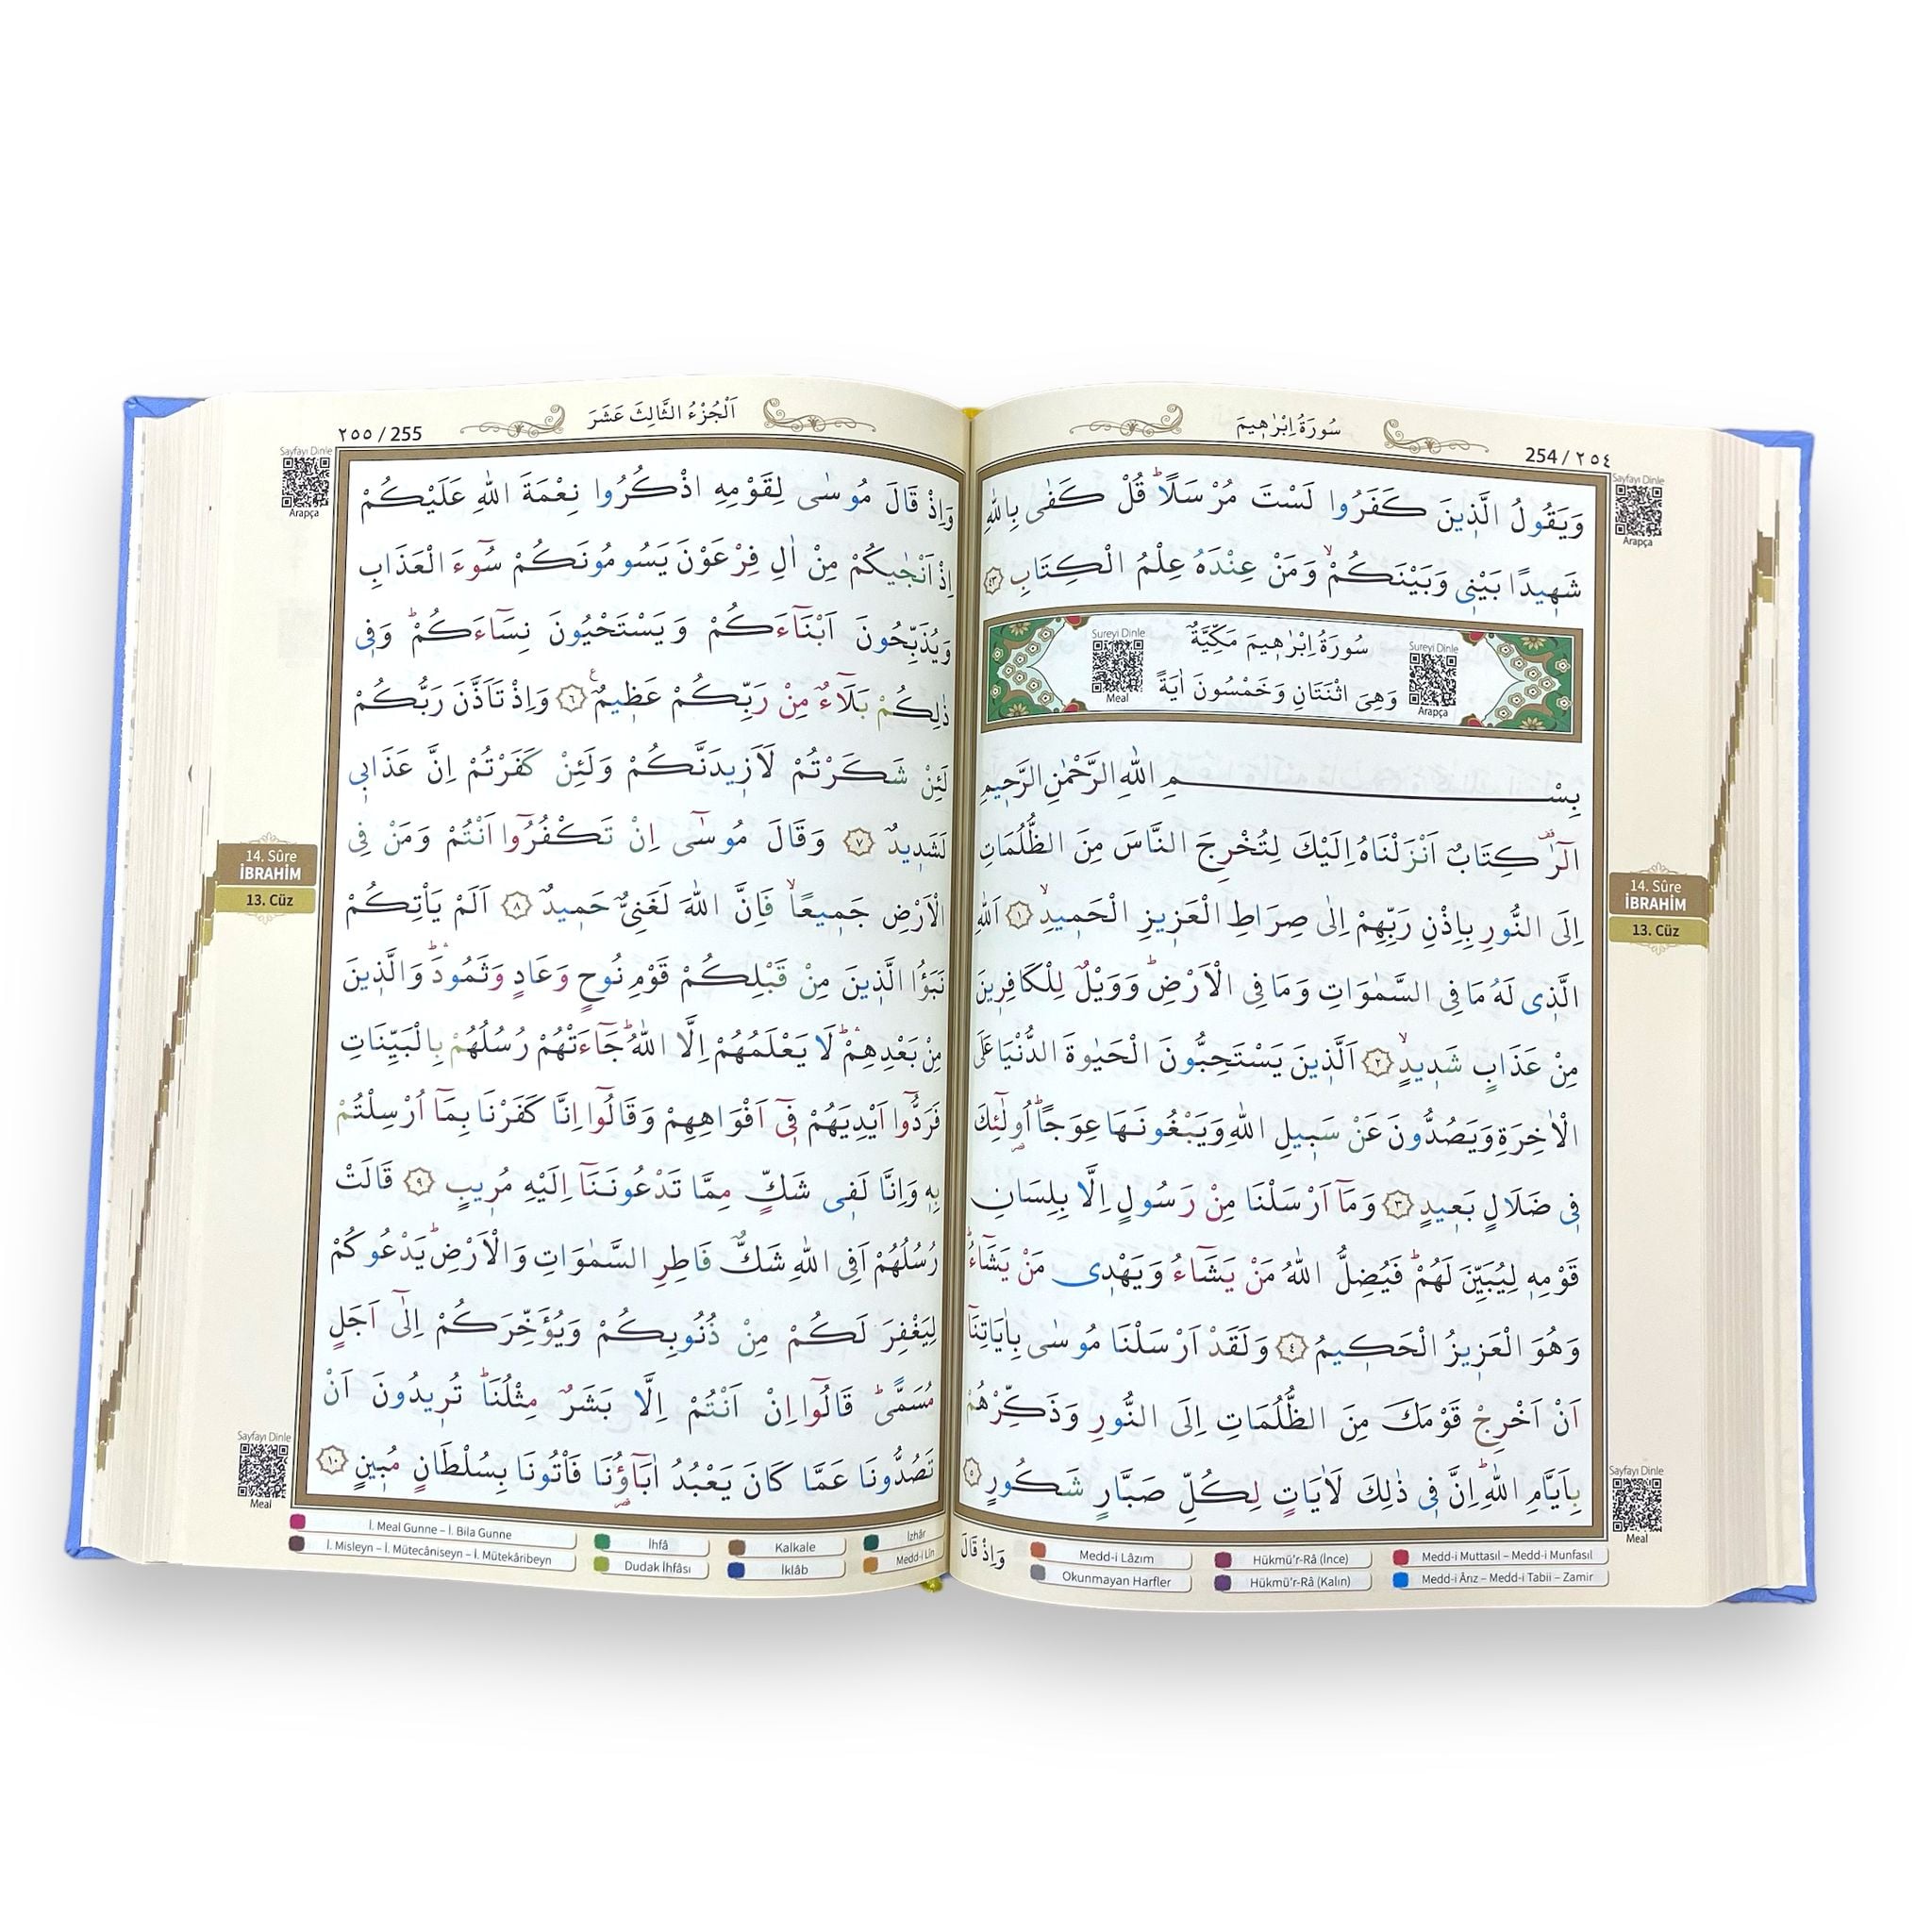 سُورَةُ اِبْرٰه۪يمَ
254 / ٢٥٤
Sayfayı Dinle
Arapça
وَيَقُولُ الَّذ۪ينَ كَفَرُوا لَسْتَ مُرْسَلًاۜ قُلْ كَفٰى بِاللّٰهِ
شَه۪يدًا بَيْن۪ي وَبَيْنَكُمْۙ وَمَنْ عِنْدَهُ عِلْمُ الْكِتَابِ ﴿٤٣﴾
Sureyi Dinle
Meal
سُورَةُ اِبْرٰه۪يمَ مَكِّيَّةٌ
وَهِيَ اثْنَتَانِ وَخَمْسُونَ اٰيَةً
Sureyi Dinle
Arapça
بِسْمِ اللّٰهِ الرَّحْمٰنِ الرَّح۪يمِ
الٓرٰ۠ كِتَابٌ اَنْزَلْنَاهُ اِلَيْكَ لِتُخْرِجَ النَّاسَ مِنَ الظُّلُمَاتِ
اِلَى النُّورِ بِاِذْنِ رَبِّهِمْ اِلٰى صِرَاطِ الْعَز۪يزِ الْحَم۪يدِۙ ﴿١﴾ اَللّٰهِ
الَّذ۪ي لَهُ مَا فِي السَّمٰوَاتِ وَمَا فِي الْاَرْضِۜ وَوَيْلٌ لِلْكَافِر۪ينَ
مِنْ عَذَابٍ شَد۪يدٍۙ ﴿٢﴾ اَلَّذ۪ينَ يَسْتَحِبُّونَ الْحَيٰوةَ الدُّنْيَا عَلَى
الْاٰخِرَةِ وَيَصُدُّونَ عَنْ سَب۪يلِ اللّٰهِ وَيَبْغُونَهَا عِوَجًاۜ اُو۬لٰٓئِكَ
ف۪ي ضَلَالٍ بَع۪يدٍ ﴿٣﴾ وَمَٓا اَرْسَلْنَا مِنْ رَسُولٍ اِلَّا بِلِسَانِ
قَوْمِه۪ لِيُبَيِّنَ لَهُمْۜ فَيُضِلُّ اللّٰهُ مَنْ يَشَٓاءُ وَيَهْد۪ي مَنْ يَشَٓاءُۜ
وَهُوَ الْعَز۪يزُ الْحَك۪يمُ ﴿٤﴾ وَلَقَدْ اَرْسَلْنَا مُوسٰى بِاٰيَاتِنَٓا
اَنْ اَخْرِجْ قَوْمَكَ مِنَ الظُّلُمَاتِ اِلَى النُّورِ وَذَكِّرْهُمْ
بِاَيَّامِ اللّٰهِۜ اِنَّ ف۪ي ذٰلِكَ لَاٰيَاتٍ لِكُلِّ صَبَّارٍ شَكُورٍ ﴿٥﴾
وَاِذْ قَالَ
14. Sûre
İBRAHİM
13. Cüz
Sayfayı Dinle
Meal
Medd-i Lâzım
Hükmü'r-Râ (İnce)
Medd-i Muttasıl – Medd-i Munfasıl
Okunmayan Harfler
Hükmü'r-Râ (Kalın)
Medd-i Ârız – Medd-i Tabii – Zamir
اَلْجُزْءُ الثَّالِثَ عَشَرَ
٢٥٥ / 255
Sayfayı Dinle
Arapça
وَاِذْ قَالَ مُوسٰى لِقَوْمِهِ اذْكُرُوا نِعْمَةَ اللّٰهِ عَلَيْكُمْ
اِذْ اَنْجٰيكُمْ مِنْ اٰلِ فِرْعَوْنَ يَسُومُونَكُمْ سُٓوءَ الْعَذَابِ
وَيُذَبِّحُونَ اَبْنَٓاءَكُمْ وَيَسْتَحْيُونَ نِسَٓاءَكُمْۜ وَف۪ي
ذٰلِكُمْ بَلَٓاءٌ مِنْ رَبِّكُمْ عَظ۪يمٌ۟ ﴿٦﴾ وَاِذْ تَاَذَّنَ رَبُّكُمْ
لَئِنْ شَكَرْتُمْ لَاَز۪يدَنَّكُمْ وَلَئِنْ كَفَرْتُمْ اِنَّ عَذَاب۪ي
لَشَد۪يدٌ ﴿٧﴾ وَقَالَ مُوسٰٓى اِنْ تَكْفُرُٓوا اَنْتُمْ وَمَنْ فِي
الْاَرْضِ جَم۪يعًاۙ فَاِنَّ اللّٰهَ لَغَنِيٌّ حَم۪يدٌ ﴿٨﴾ اَلَمْ يَأْتِكُمْ
نَبَؤُا الَّذ۪ينَ مِنْ قَبْلِكُمْ قَوْمِ نُوحٍ وَعَادٍ وَثَمُودَۜۛ وَالَّذ۪ينَ
مِنْ بَعْدِهِمْۜۛ لَا يَعْلَمُهُمْ اِلَّا اللّٰهُۜ جَٓاءَتْهُمْ رُسُلُهُمْ بِالْبَيِّنَاتِ
فَرَدُّٓوا اَيْدِيَهُمْ ف۪ٓي اَفْوَاهِهِمْ وَقَالُٓوا اِنَّا كَفَرْنَا بِمَٓا اُرْسِلْتُمْ
بِه۪ وَاِنَّا لَف۪ي شَكٍّ مِمَّا تَدْعُونَنَٓا اِلَيْهِ مُر۪يبٍ ﴿٩﴾ قَالَتْ
رُسُلُهُمْ اَفِي اللّٰهِ شَكٌّ فَاطِرِ السَّمٰوَاتِ وَالْاَرْضِۜ يَدْعُوكُمْ
لِيَغْفِرَ لَكُمْ مِنْ ذُنُوبِكُمْ وَيُؤَخِّرَكُمْ اِلٰٓى اَجَلٍ
مُسَمًّىۜ قَالُٓوا اِنْ اَنْتُمْ اِلَّا بَشَرٌ مِثْلُنَاۜ تُر۪يدُونَ اَنْ
تَصُدُّونَا عَمَّا كَانَ يَعْبُدُ اٰبَٓاؤُ۬نَا فَأْتُونَا بِسُلْطَانٍ مُب۪ينٍ ﴿١٠﴾
14. Sûre
İBRAHİM
13. Cüz
Sayfayı Dinle
Meal
İ. Meal Gunne – İ. Bila Gunne
İhfâ
Kalkale
İzhâr
İ. Misleyn – İ. Mütecâniseyn – İ. Mütekâribeyn
Dudak İhfâsı
İklâb
Medd-i Lîn